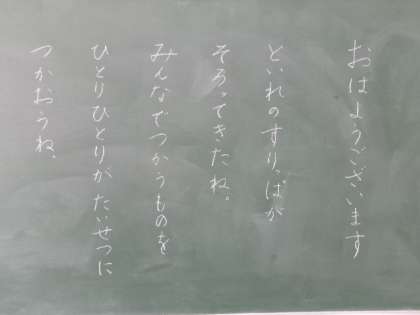 おはようございます
といれのすりっぱが
そろってきたね。
みんなでつかうものを
ひとりひとりが たいせつに
つかおうね、